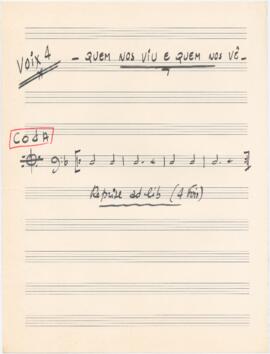 Voix 4
- QUEM NOS VIU E QUEM NOS VÊ -
CODA
Reprise ad-lib (4 Fois)